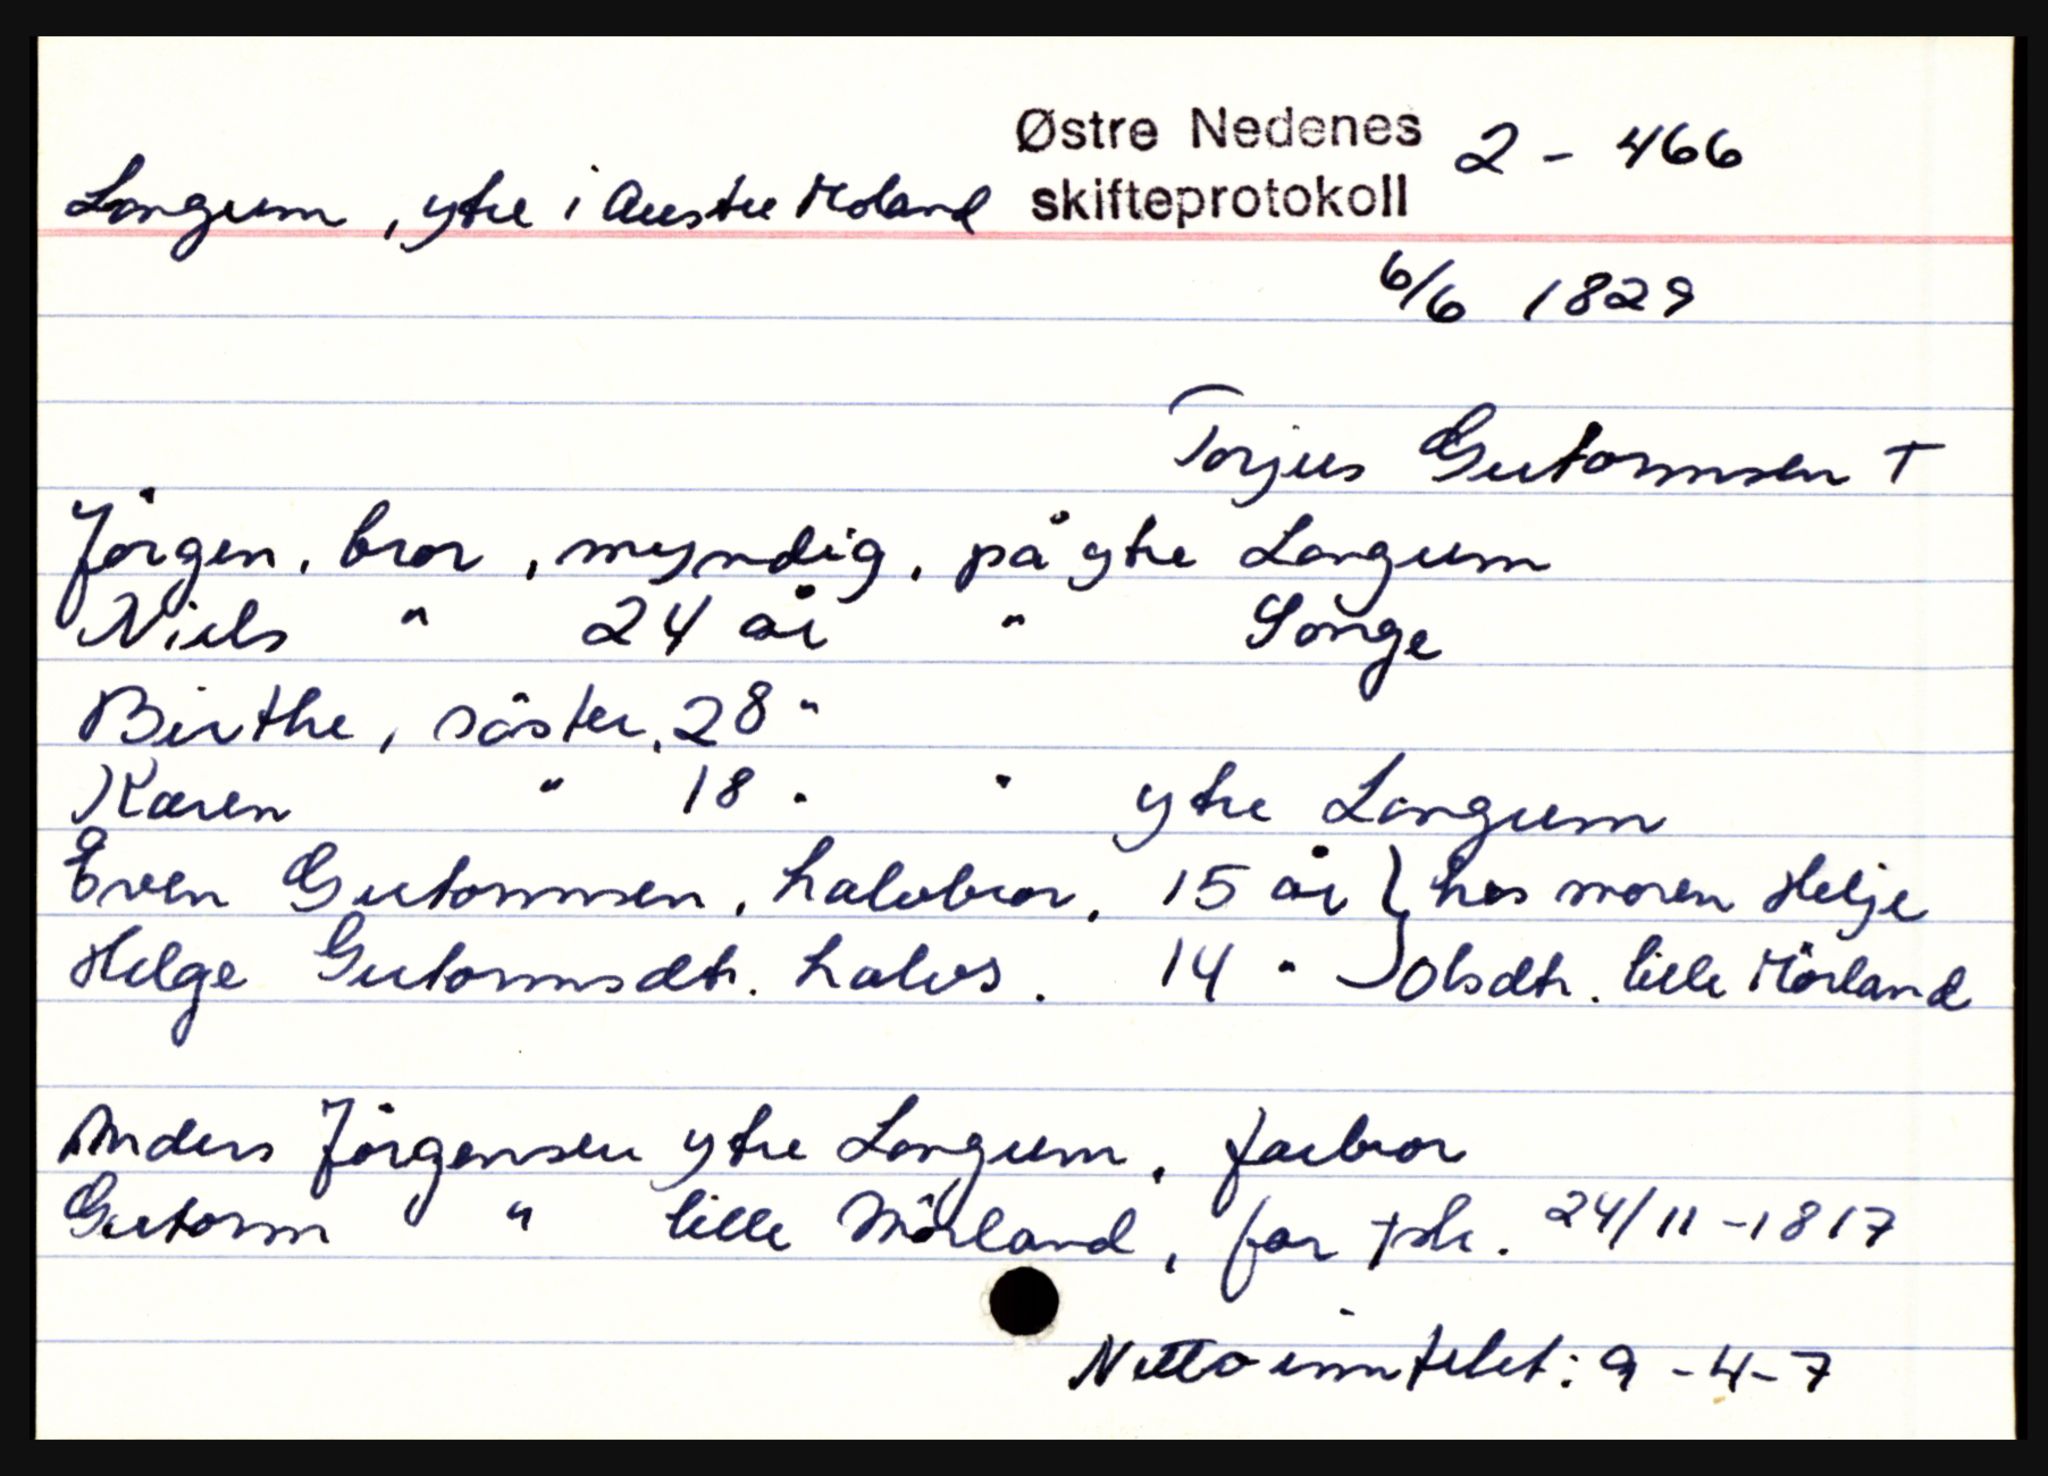 Østre Nedenes 2 - 466
Langum, ytre i Austre Moland skifteprotokoll
6/6 1829
Torjus Gutormsen †
Jörgen, bror, myndig, på ytre Langum
Niels " 24 år " Songe
Birthe, söster, 28 "
Karen " 18 " " ytre Langum
Even Gutormsen, halvbror, 15 år } hos moren Helje
Helge Gutormsdtr. halvs. 14 " } Olsdtr. lille Mörland
Anders Jörgensen ytre Langum, farbror
Gutorm " lille Mörland, far † sk. 24/11 - 1817
Netto inntekt: 9 - 4 - 7